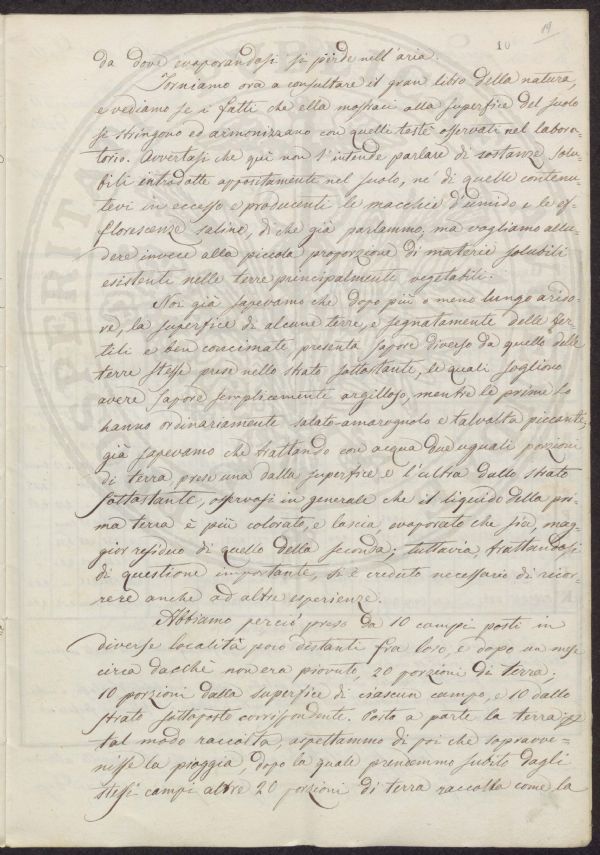 10
19
da dove evaporandosi si perde nell'aria.
Torniamo ora a consultare il gran libro della natura,
e vediamo se i fatti che ella mostraci alla superfice del suolo
si stringono ed armonizzano con quelli testè osservati nel labora-
torio. Avvertasi che quì non s'intende parlare di sostanze solu-
bili introdotte appositamente nel suolo, nè di quelle contenu-
tevi in eccesso e producenti le macchie d'umido e le ef-
florescenze saline, di che già parlammo, ma vogliamo allu-
dere invece alla piccola proporzione di materie solubili
esistenti nelle terre principalmente vegetabili.
Noi già sapevamo che dopo più o meno lungo asciso-
re, la superfice di alcune terre, e segnatamente delle fer-
tili e ben concimate presenta sapore diverso da quello delle
terre stesse prese nello strato sottostante, le quali sogliono
avere sapore semplicemente argilloso, mentre le prime lo
hanno ordinariamente salato-amarognolo e talvolta piccante;
già sapevamo che trattando con acqua due uguali porzioni
di terra prese una dalla superfice e l'altra dallo strato
sottostante, osservasi in generale che il liquido della pri-
ma terra è più colorato, e lascia, evaporato che sia, mag-
gior residuo di quello della seconda; tuttavia trattandosi
di questione importante, si è creduto necessario di ricor-
rere anche ad altre esperienze.
Abbiamo perciò preso da 10 campi posti in
diverse località poco distanti fra loro, e dopo un mese
circa dacchè non era piovuto, 20 porzioni di terra;
10 porzioni dalla superfice di ciascun campo, e 10 dallo
strato sottoposto corrispondente. Posto a parte la terra in
tal modo raccolta, aspettammo di poi che sopravve-
nisse la pioggia, dopo la quale prendemmo subito dagli
stessi campi altre 20 porzioni di terra raccolta come la